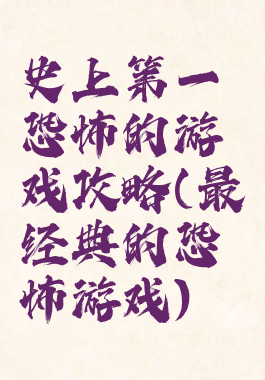 史上第一
恐怖的游
戏攻略(最
经典的恐
怖游戏)